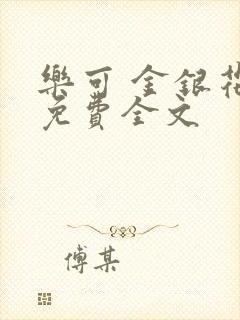 樂可 金銀花
免費全文
傅某